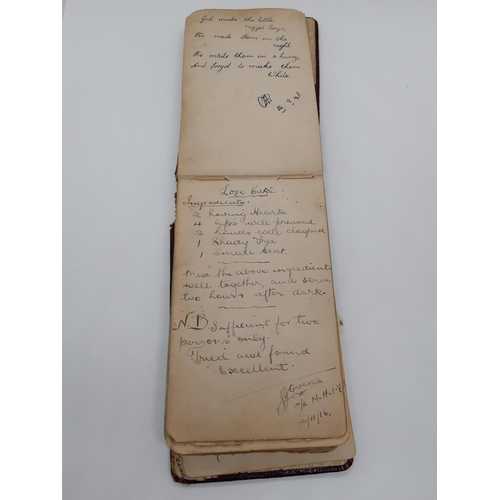 God made the little
nigger boys,
He made them in the
night.
He made them in a hurry,
And forgot to make them
White.
Love Cake.
Ingredients.
2 Loving Hearts
4 lips well pressed
2 hands well clasped
1 Shady Tree
1 Small Seat.
Mix the above ingredients
well together, and serve
two hours after dark.
N.B Sufficient for two
persons only.
Tried and found
Excellent.